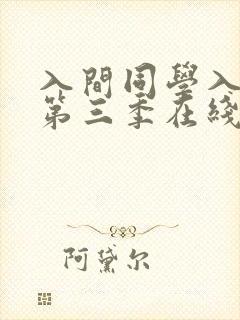 入間同學入
第三季在綫
阿黛尔